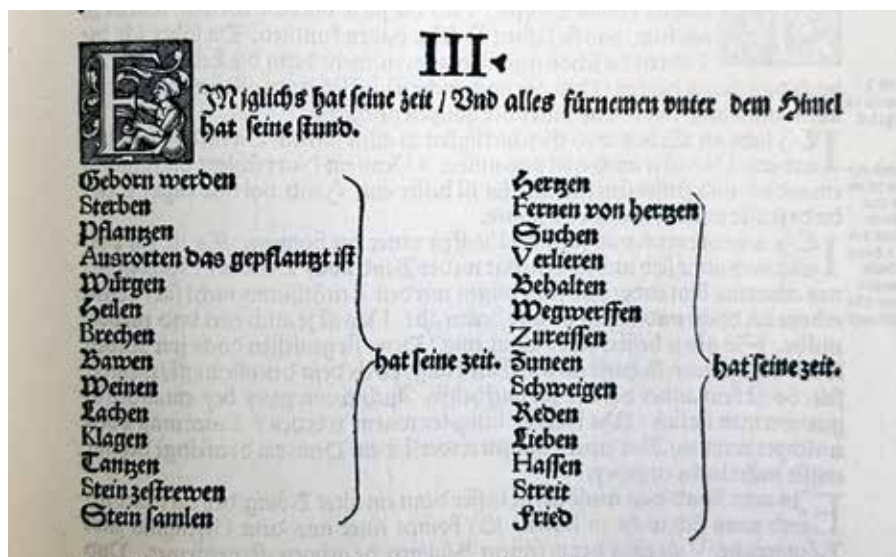 III.
EJnjglichs hat seine zeit / Vnd alles fürnemen vnter dem Himel
hat seine stund.
Geborn werden
Sterben
Pflantzen
Ausrotten das gepflantzt ist
Würgen
Heilen
Brechen
Bawen
Weinen
Lachen
Klagen
Tantzen
Stein zestrewen
Stein samlen
hat seine zeit.
Hertzen
Fernen von hertzen
Suchen
Verlieren
Behalten
Wegwerffen
Zureissen
Zuneen
Schweigen
Reden
Lieben
Hassen
Streit
Fried
hat seine zeit.